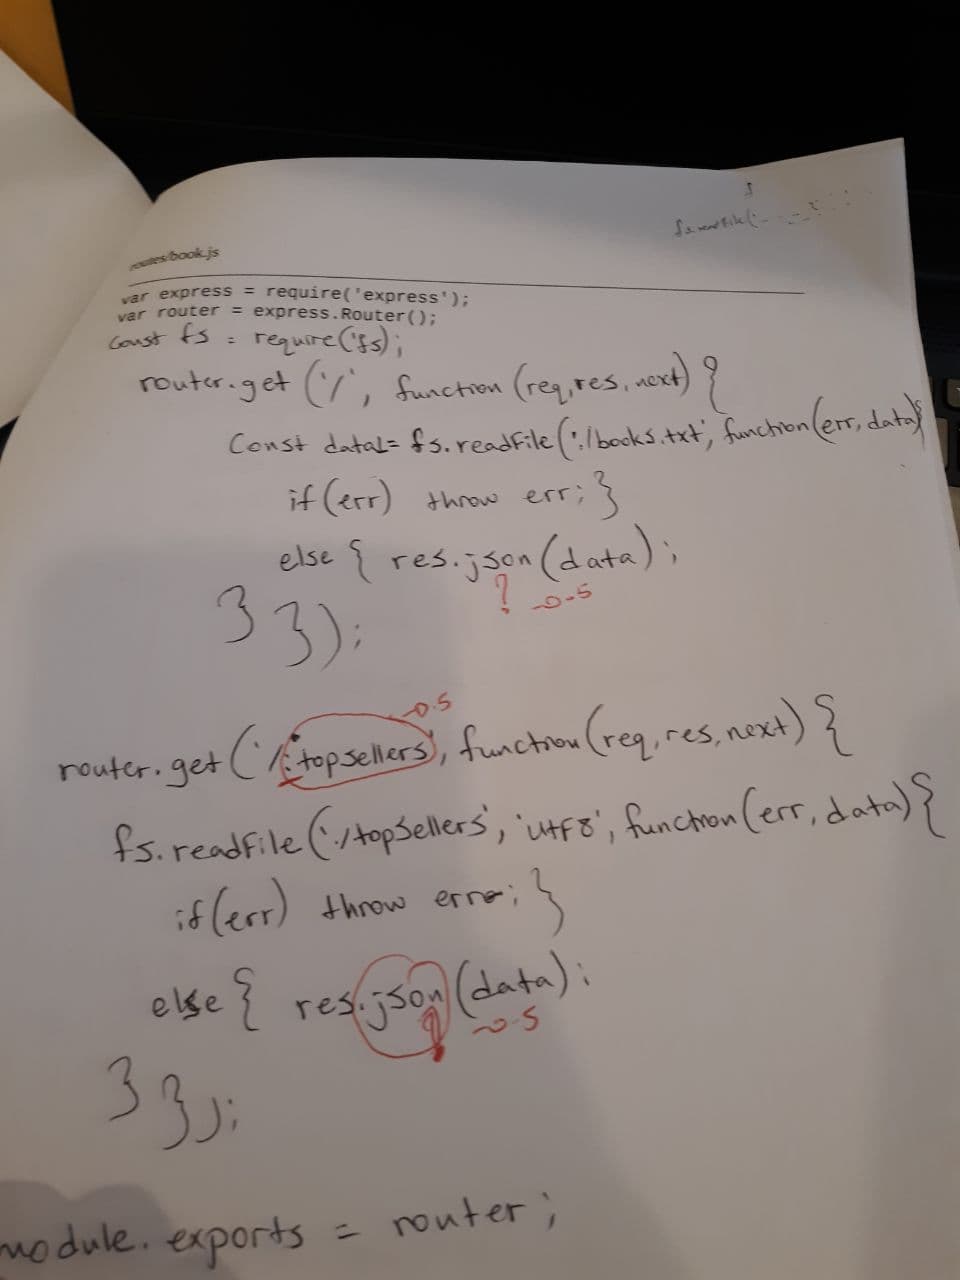 fs.readFile(
routes/book.js
var express = require('express');
var router = express.Router();
const fs = require('fs);
router.get ('/', function (req, res, next) {
Const data1= fs.readFile('./books.txt', function(err, data){
if(err) throw err; }
else { res.json(data);
? -0.5
} });
-0.5
router.get ('/:topsellers', function(req, res, next) {
fs.readFile('./topsellers', 'utf8', function(err, data){
if(err) throw erro; }
else { res.json(data);
-0.5
} });
module.exports = router;